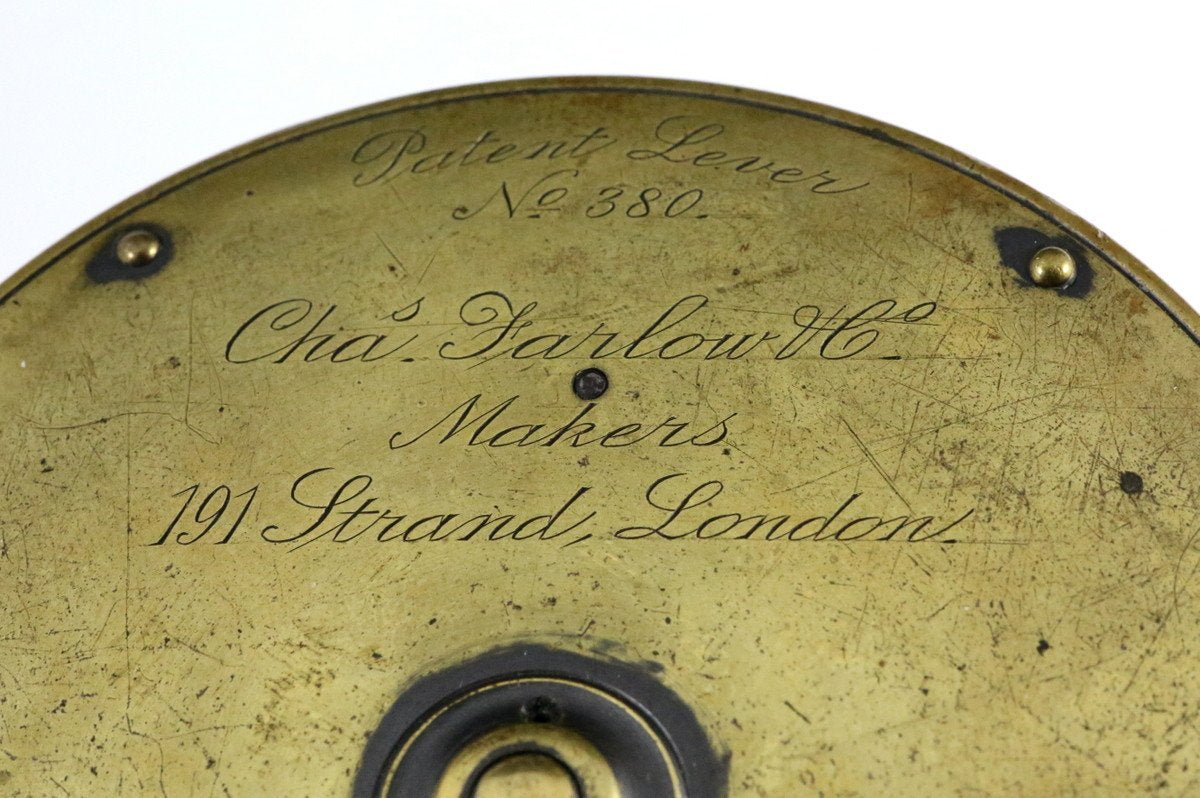 Patent Lever
No 380.
Chas. Farlow & Co.
Makers
191 Strand, London.